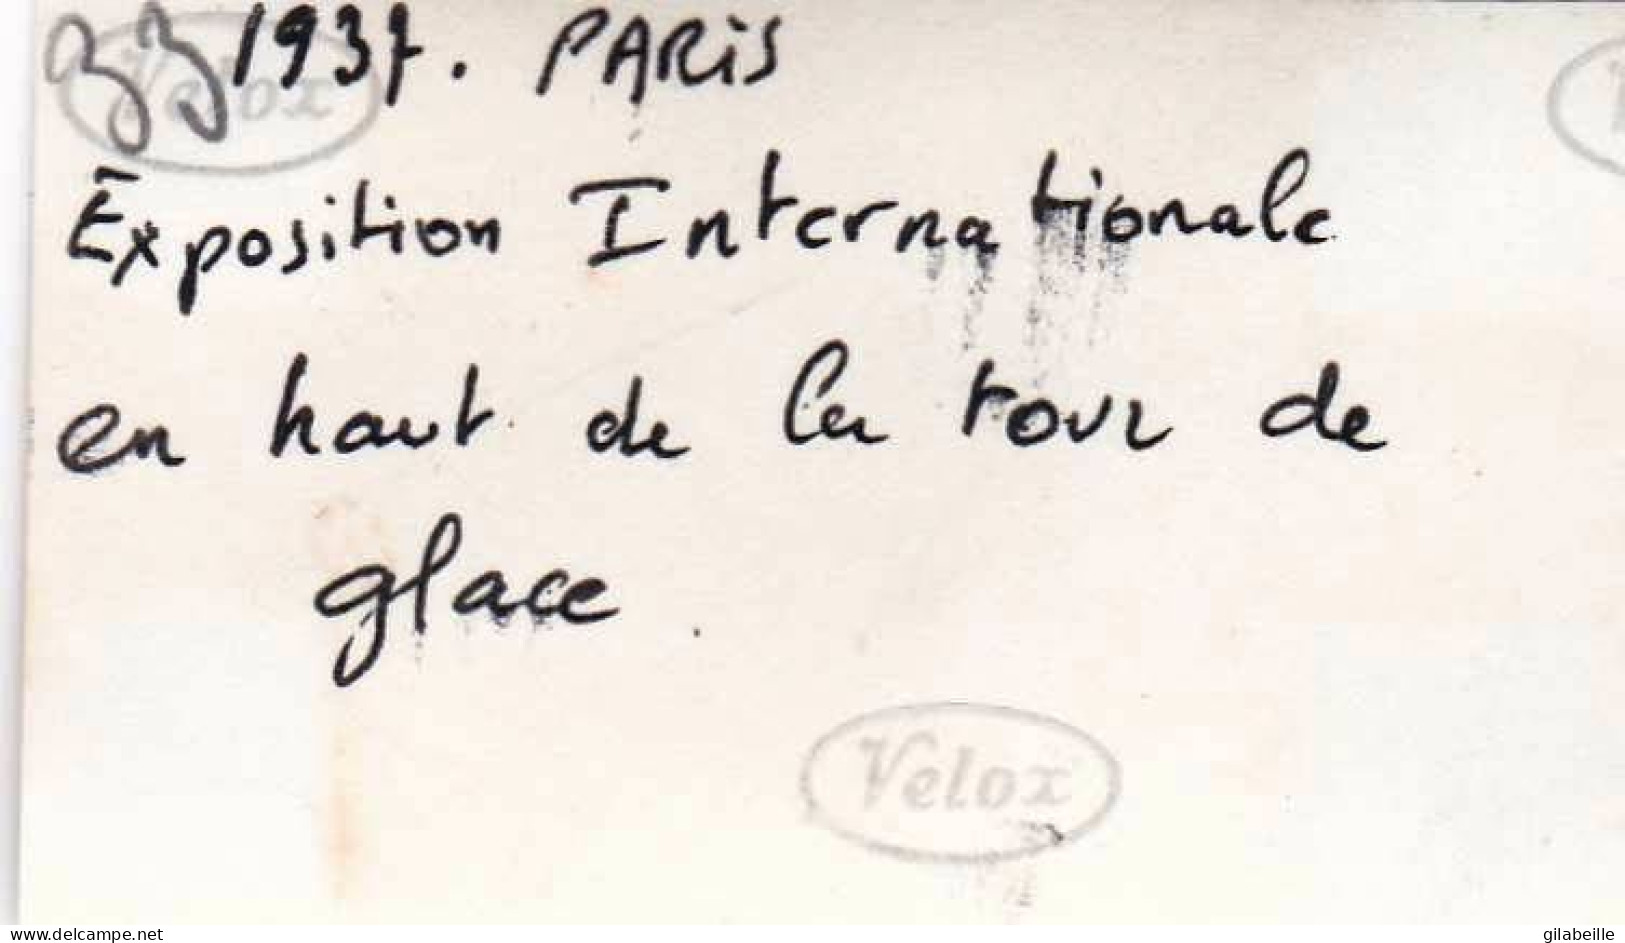 33 1937. PARIS
Velox
Exposition Internationale
en haut de la tour de
glace.
Velox
www.delcampe.net
gilabeille